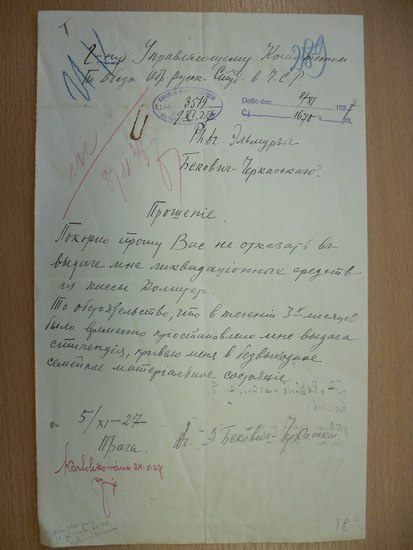 Г-ну Управляющему Комитетом
По обезп. обр. русск. студ. в Ч.С.Р
289
3519
9 XI. 27
Došlo dne: 8/XI 1927
Čj. 1670
Эльмурзы
Бекович-Черкасскаго
Прошеніе.
Покорно прошу Вас не отказать въ
выдаче мне ликвидаціонные средств
из кассы Комитета.
То обстоятельство, что в теченіи 3х месяцев
было временно пріостановлено мне выдача
стипендія, привело меня в безвыходное
семейное матеріальное состояніе.
5/XI-27
Прага.
Э. Бекович-Черкасскій
18